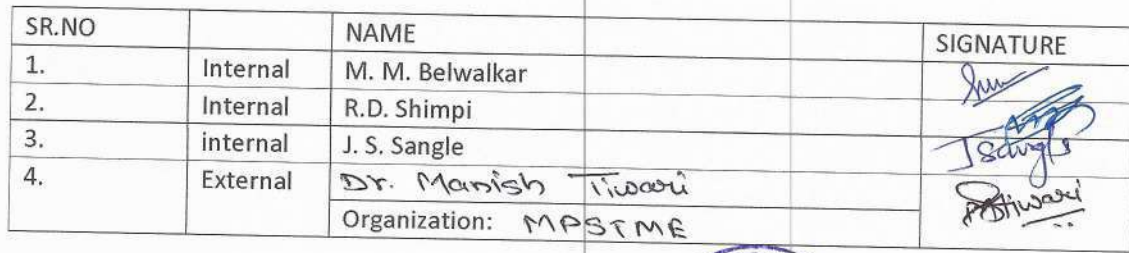 SR.NO NAME SIGNATURE
1. Internal M. M. Belwalkar
2. Internal R.D. Shimpi
3. internal J. S. Sangle JSangle
4. External Dr. Manish Tiwari Tiwari
Organization: MPSTME